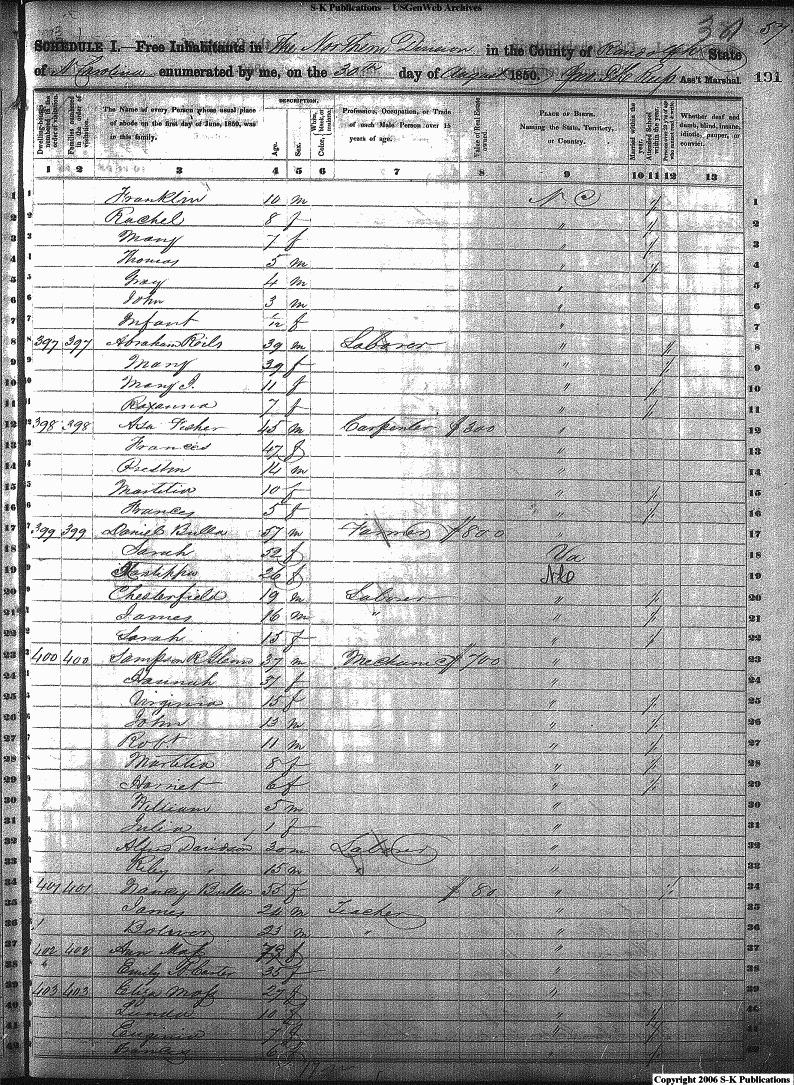 S-K Publications -- USGenWeb Archives
57
SCHEDULE I.—Free Inhabitants in The Northern Division in the County of Randolph State
of N. Carolina enumerated by me, on the 20th day of August 1850. Ass't Marshal. 191
DESCRIPTION.
Dwelling-houses numbered in the order of visitation.
Families numbered in the order of visitation.
The Name of every Person whose usual place of abode on the first day of June, 1850, was in this family.
Age.
Sex.
White, black, or mulatto.
Color,
Profession, Occupation, or Trade of each Male Person over 15 years of age.
Value of Real Estate owned.
PLACE OF BIRTH. Naming the State, Territory, or Country.
Married within the year.
Attended School within the year.
Whether deaf and dumb, blind, insane, idiotic, pauper, or convict.
1 2 3 4 5 6 7 8 9 10 11 12 13
1 Franklin 10 m N C / 1
2 Rachel 8 f " / 2
3 Mary 7 f " / 3
4 Thomas 5 m " / 4
5 Gray 4 m " 5
6 John 3 m " 6
7 Infant 1/12 f " 7
8 397 397 Abraham 39 m Laborer " / 8
9 Mary 39 f " / 9
10 Mary J. 11 f " / 10
11 Roxanna 7 f " / 11
12 398 398 Asa Fisher 45 m Carpenter $300 " 12
13 Frances 47 f " 13
14 Preston 14 m " 14
15 Martitia 10 f " / 15
16 Frances 5 f " / 16
17 399 399 Daniel Bulla 57 m Farmer $800 " 17
18 Sarah 52 f Va 18
19 26 f N C 19
20 Chesterfield 19 m Laborer " / 20
21 James 16 m " " / 21
22 Sarah 15 f " / 22
23 400 400 Sampson R Glenn 37 m Mechanic $700 " 23
24 Hannah 37 f " 24
25 Virginia 15 f " / 25
26 John 13 m " / 26
27 Robt 11 m " / 27
28 Martitia 8 f " / 28
29 Harriet 6 f " / 29
30 William 5 m " 30
31 Julia 1 f " 31
32 Davidson 20 m Laborer " 32
33 Riley 15 m " " 33
34 401 401 Nancy Bulla 55 f $80 " / 34
35 James 24 m Teacher " 35
36 23 m " " 36
37 402 402 Ann Moss f " 37
38 Emily Carter 35 f " 38
39 403 403 Eliza Moss 27 f " 39
40 10 f " / 40
41 Eugenia 7 f " / 41
42 Frances 6 f " / 42
Copyright 2006 S-K Publications